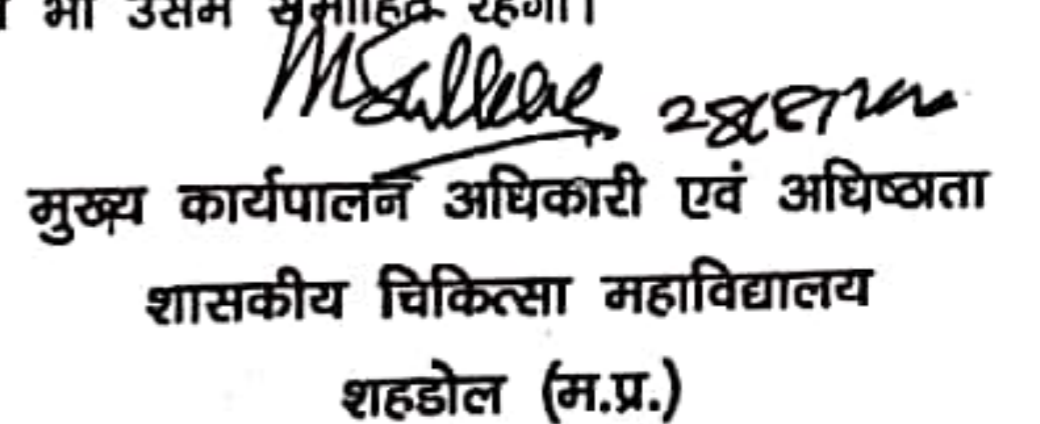 भी उसमें समाहित रहेगा।
मुख्य कार्यपालन अधिकारी एवं अधिष्ठाता
शासकीय चिकित्सा महाविद्यालय
शहडोल (म.प्र.)